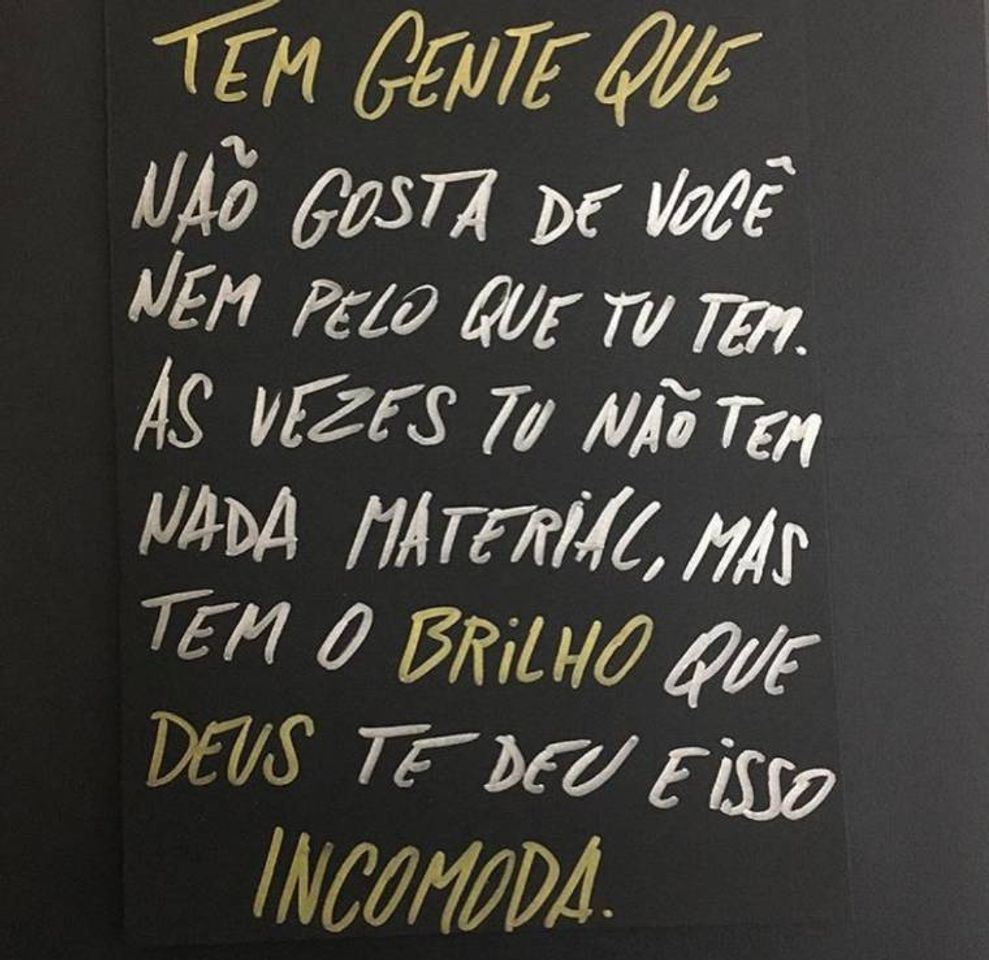 TEM GENTE QUE
NÃO GOSTA DE VOCÊ
NEM PELO QUE TU TEM.
AS VEZES TU NÃO TEM
NADA MATERIAL, MAS
TEM O BRILHO QUE
DEUS TE DEU E ISSO
INCOMODA.